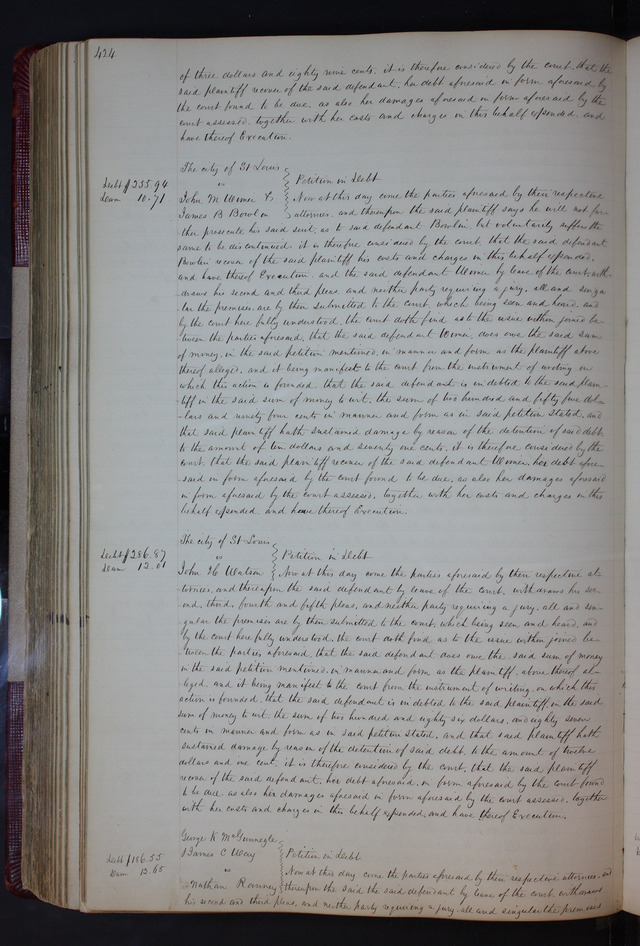 424
of three dollars and eighty nine cents. it is therefore considered by the court, that the
said plaintiff recover of the said defendant, her debt aforesaid in form aforesaid by
the court found to be due, as also her damages aforesaid in form aforesaid by the
court assessed, together with her costs and charges in this behalf expended, and
have thereof Execution.
The city of St Louis
vs
Petition in Debt
Debt $255.94
Dam 10.71
John M Wimer &
James B Bowlin
Now at this day come the parties aforesaid by their respective
attornies, and thereupon the said plaintiff says he will not fur-
ther prosecute his said suit, as to said defendant Bowlin, but voluntarily suffers the
same to be discontinued. it is therefore considered by the court, that the said defendant
Bowlin recover of the said plaintiff his costs and charges in this behalf expended,
and have thereof Execution. and the said defendant Wimer by leave of the court with-
draws his second and third pleas, and neither party requiring a jury, all and singu-
lar the premises are by them submitted to the court, which being seen and heard, and
by the court here fully understood, the court doth find as to the issue within joined be-
tween the parties aforesaid, that the said defendant Wimer, does owe the said sum
of money, in the said petition mentioned, in manner and form as the plaintiff above
thereof alleges, and it being manifest to the court from the instrument of writing on
which this action is founded, that the said defendant is indebted to the said plain-
tiff in the said sum of money to wit, the sum of two hundred and fifty five dol-
lars and ninety four cents in manner and form as in said petition stated, and
that said plaintiff hath sustained damage by reason of the detention of said debt
to the amount of ten dollars and seventy one cents. it is therefore considered by the
court, that the said plaintiff recover of the said defendant Wimer, her debt afore-
said in form aforesaid by the court found to be due, as also her damages aforesaid
in form aforesaid by the court assessed, together with her costs and charges in this
behalf expended, and have thereof Execution.
The city of St Louis
vs
Petition in Debt
Debt $286.87
Dam 12.01
John H Watson
Now at this day come the parties aforesaid by their respective at-
tornies, and thereupon the said defendant by leave of the court, withdraws his sec-
ond, third, fourth and fifth pleas, and neither party requiring a jury, all and sin-
gular the premises are by them submitted to the court, which being seen and heard, and
by the court here fully understood, the court doth find as to the issue within joined be-
tween the parties aforesaid, that the said defendant does owe the said sum of money
in the said petition mentioned, in manner and form as the plaintiff above thereof al-
leged, and it being manifest to the court from the instrument of writing, on which this
action is founded, that the said defendant is indebted to the said plaintiff, in the said
sum of money to wit, the sum of two hundred and eighty six dollars, and eighty seven
cents in manner and form as in said petition stated, and that said plaintiff hath
sustained damage by reason of the detention of said debt, to the amount of twelve
dollars and one cent. it is therefore considered by the court, that the said plaintiff
recover of the said defendant, her debt aforesaid, in form aforesaid by the court found
to be due, as also her damages aforesaid in form aforesaid by the court assessed, together
with her costs and charges in this behalf expended, and have thereof Execution.
George K McGunnegle
& James C Way
vs
Petition in Debt
Debt $186.55
Dam 13.65
Nathan Ranney
Now at this day come the parties aforesaid by their respective attornies, and
thereupon the said the said defendant by leave of the court, withdraws
his second and third pleas, and neither party requiring a jury, all and singular the premises